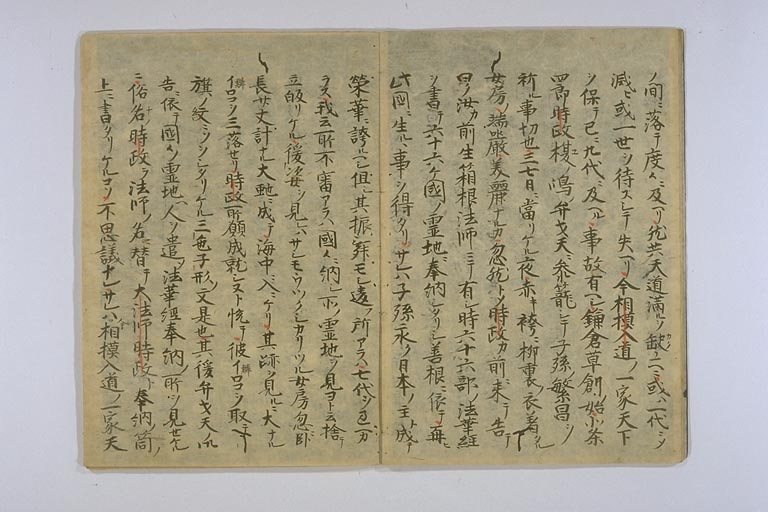 ノ間ニ落テ度々ニ及ヘリ然共天道満ヲ欠ク故ニ或ハ一代ニシテ
滅ヒ或一世ヲ待スシテ失ヘリ今相模入道ノ一家天下
ヲ保テ已ニ九代ニ及ヘル事故有リ鎌倉草創ノ始北条
四郎時政榎嶋弁才天ニ参籠シテ子孫繁昌ヲ
祈ル事切也三七日ニ當リケル夜赤キ袴ニ柳裏ノ衣着タル
女房ノ端嚴美麗ナルカ忽然トシテ時政カ前ニ来テ告テ
曰ク汝カ前生箱根法師ニテ有シ時六十六部ノ法華経
ヲ書テ六十六ケ國ノ霊地ニ奉納シタリシ善根ニ依テ再ヒ
此國ニ生ルヽ事ヲ得タリサレハ子孫永ク日本ノ主ト成テ
榮華ニ誇ルヘシ但シ其振舞モシ違フ所アラハ七代ヲ不可過
ラス我云所不審アラハ國々ニ納シ所ノ霊地ヲ見ヨト云捨テ
立皈リケル後姿ヲ見レハサシモウツクシカリツル女房忽ニ臥
長廿丈計ナル大蛇ニ成テ海中ニ入ヘケリ其跡ヲ見ルニ大ナル
イロコヲ三落セリ時政所願成就シヌト悦テ彼イロコヲ取テ
旗ノ紋ニソシタリケル三色子形ノ文是也其後弁才天ノ
告ニ依テ國々ノ霊地ヘ人ヲ遣テ法華経奉納ノ所ヲ見せルニ
俗名時政ヲ法師ノ名ニ替テ大法師時政ト奉納筒ノ
上ニ書タリケルコソ不思議ナレサレハ相模入道ノ一家天